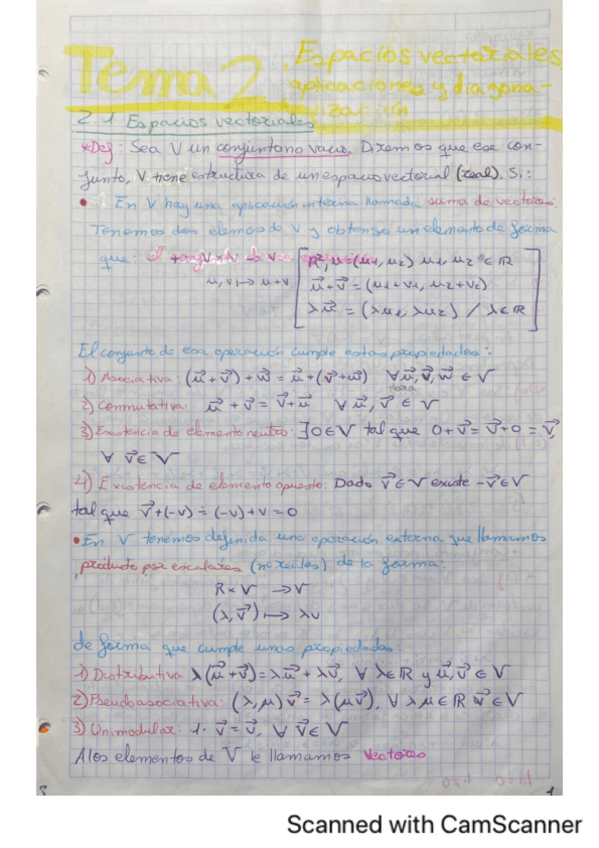 Tema 2. Espacios vectoriales,
aplicaciones y diagona-
lización
2.1 Espacios vectoriales
*Def: Sea V un conjunto no vacío. Diremos que ese con-
junto, V tiene estructura de un espacio vectorial (real). Si:
• En V hay una aplicación interna llamada suma de vectores.
Tenemos dos elemos de V y obtengo un elemento de forma
que: + V×V → V
u, v ↦ u+v
ℝ², u=(u1, u2) u1, u2 ∈ ℝ
u⃗+v⃗ = (u1+v1, u2+v2)
λu⃗ = (λu1, λu2) / λ∈ℝ
El conjunto de esa operación cumple estas propiedades:
1) Asociativa: (u⃗+v⃗)+w⃗ = u⃗+(v⃗+w⃗) ∀u⃗,v⃗,w⃗ ∈ V
para
2) Conmutativa: u⃗ + v⃗ = v⃗+u⃗ ∀ u⃗, v⃗ ∈ V
3) Existencia de elemento neutro: ∃0∈V tal que 0+v⃗=v⃗+0 = v⃗,
∀ v⃗∈V
4) Existencia de elemento opuesto: Dado v⃗∈V existe -v⃗∈V
tal que v⃗+(-v) = (-v)+v=0
• En V tenemos definida una operación externa que llamamos
producto por escalares (nº reales) de la forma:
R×V → V
(λ, v⃗) ↦ λv
de forma que cumple unas propiedades:
1) Distributiva λ(u⃗+v⃗)=λu⃗+λv⃗, ∀ λ∈ℝ y u⃗,v⃗ ∈ V
2) Pseudoasociativa: (λ,μ) v⃗ = λ(μv⃗), ∀ λ,μ∈ℝ v⃗∈V
3) Unimodular: 1· v⃗ = v⃗, ∀ v⃗∈V
A los elementos de V le llamamos vectores
1
Scanned with CamScanner